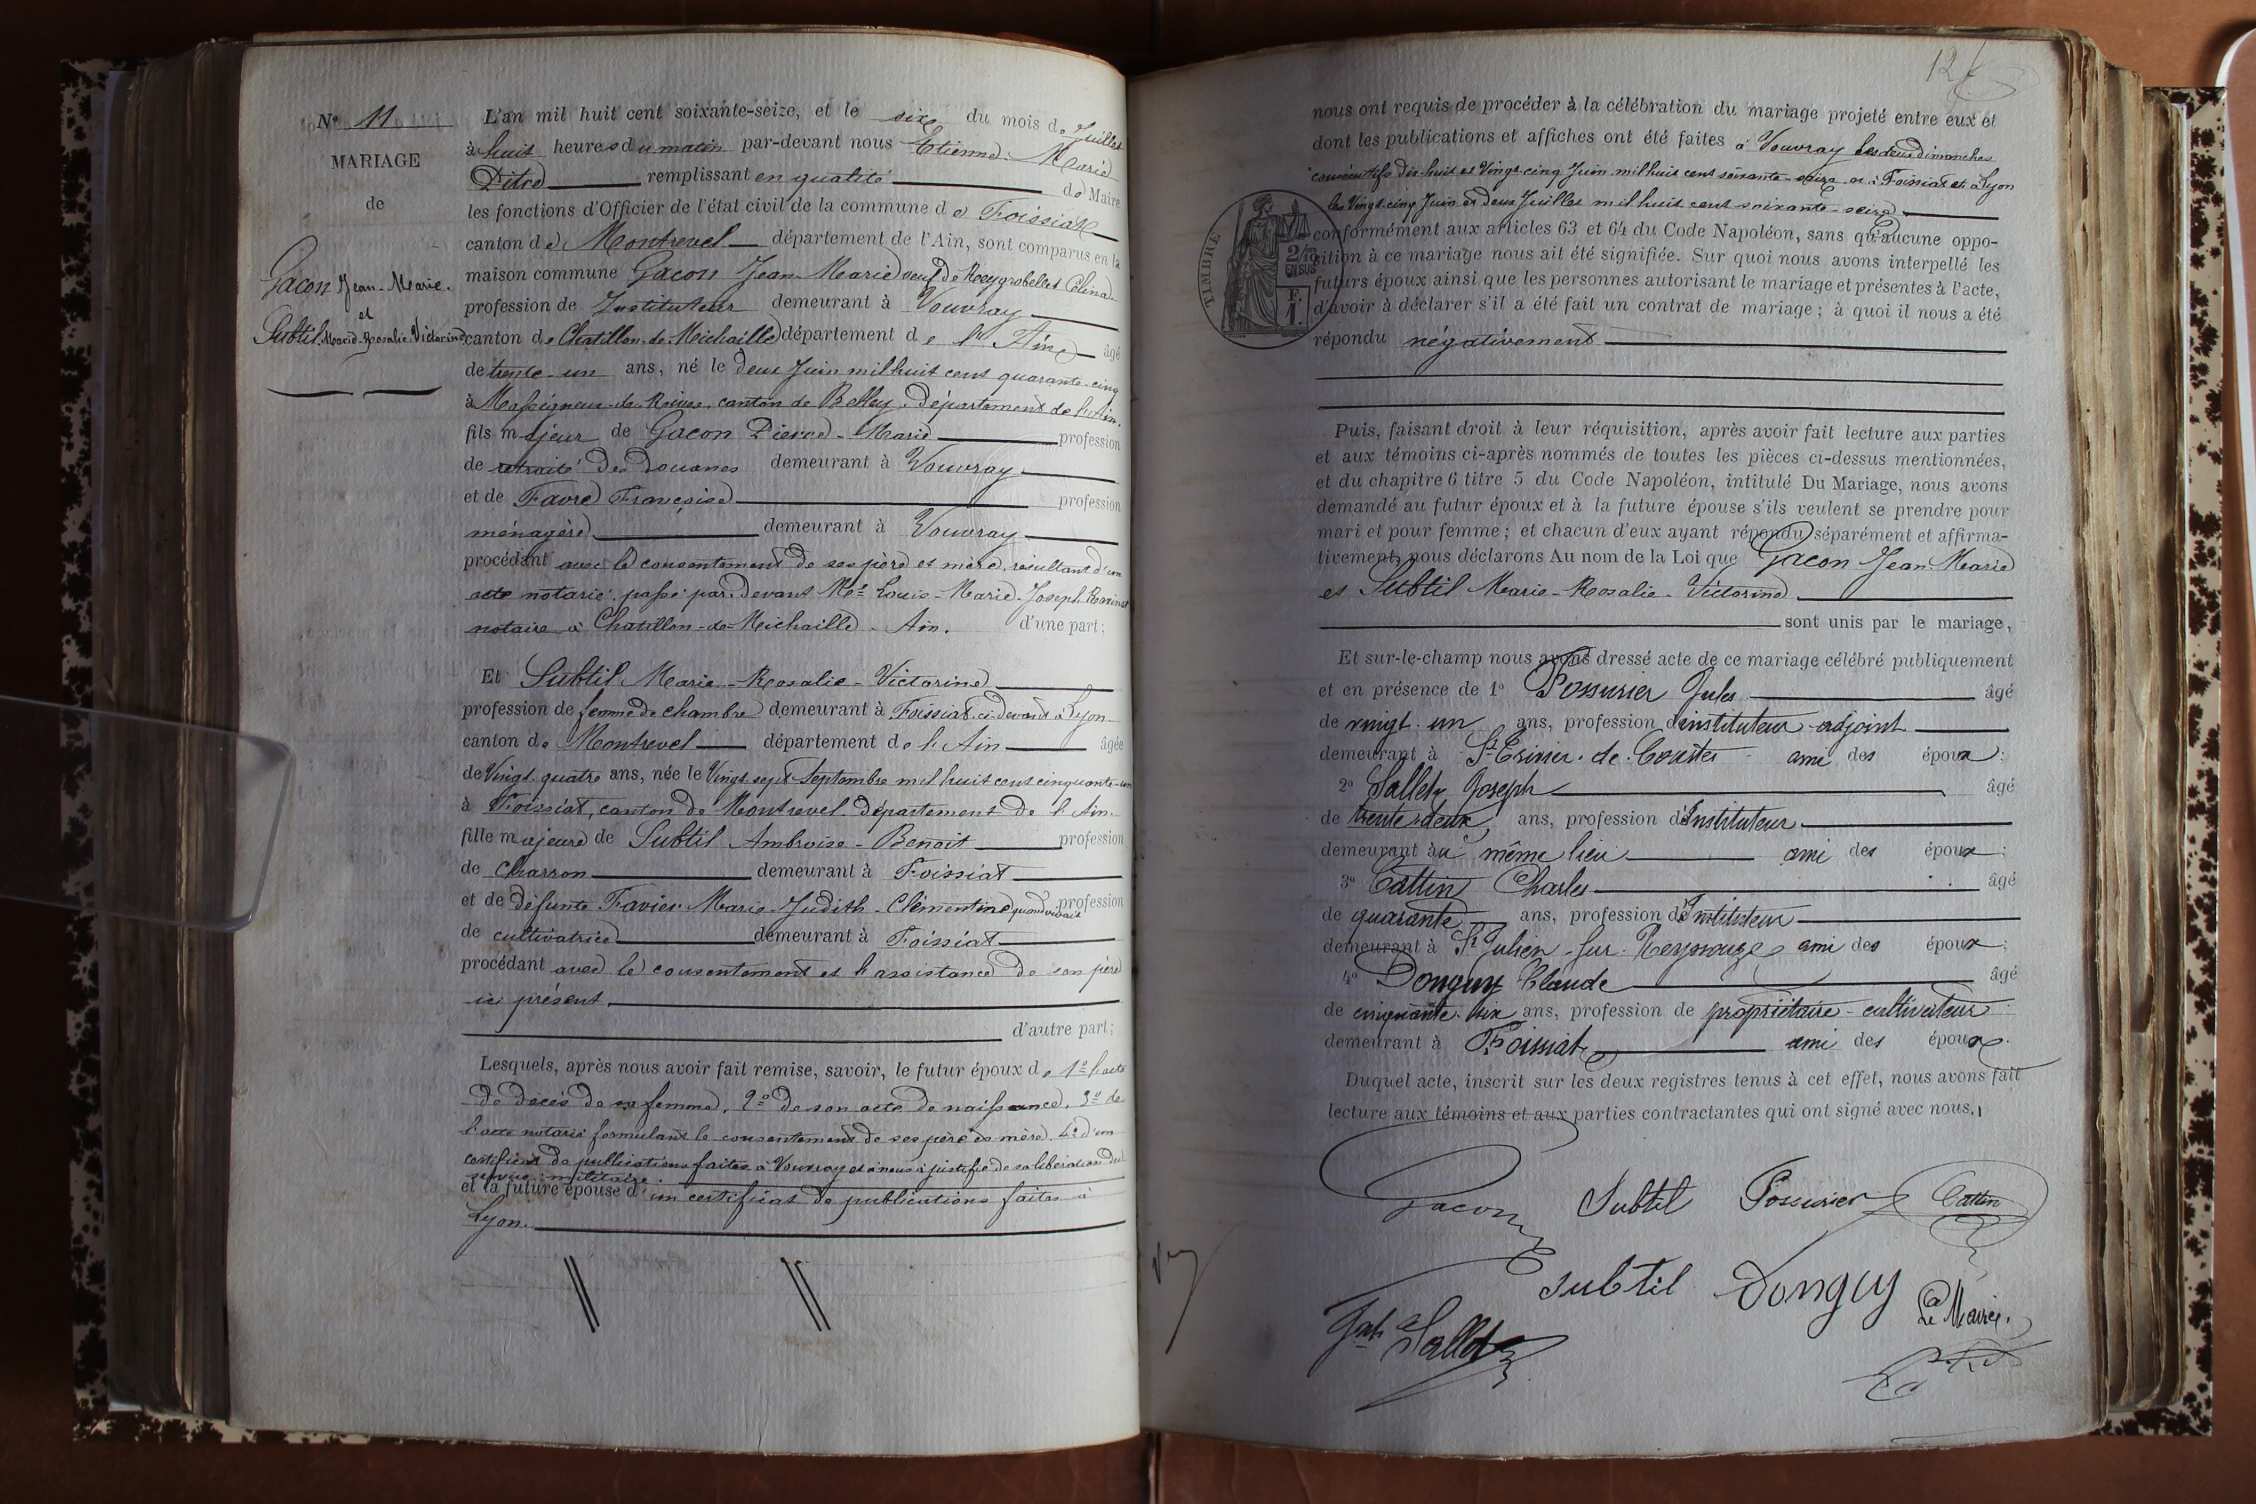 N° 11
MARIAGE
de
Gacon Jean-Marie.
et
Subtil Marie-Rosalie-Victorine
L'an mil huit cent soixante-seize, et le six du mois de Juillet
à huit heures du matin par-devant nous Etienne-Marie
Pitre remplissant en qualité de Maire
les fonctions d'Officier de l'état civil de la commune de Foissiat
canton de Montrevel département de l'Ain, sont comparus en la
maison commune Gacon Jean Marie veuf de
profession de Instituteur demeurant à Vouvray
canton de Chatillon-de-Michaille département de l'Ain âgé
de trente-un ans, né le deux Juin mil huit cent quarante-cinq
à Massigneu-de-Rives, canton de Belley, Département de l'Ain.
fils majeur de Gacon Pierre-Marie profession
de retraité des Douanes demeurant à Vouvray
et de Favre Françoise profession
ménagère demeurant à Vouvray
procédant avec le consentement de ses père et mère, résultant d'un
acte notarié passé par devant Me Louis-Marie-Joseph
notaire à Chatillon-de-Michaille-Ain. d'une part;
Et Subtil Marie-Rosalie-Victorine
profession de femme de chambre demeurant à Foissiat ci-devant à Lyon
canton de Montrevel département de l'Ain âgée
de Vingt-quatre ans, née le Vingt sept Septembre mil huit cent cinquante-un
à Foissiat, canton de Montrevel département de l'Ain
fille majeure de Subtil Ambroise-Benoit profession
de Charron demeurant à Foissiat
et de défunte Favier Marie-Judith-Clémentine quand vivait profession
de cultivatrice demeurant à Foissiat
procédant avec le consentement et l'assistance de son père
ici présent
d'autre part;
Lesquels, après nous avoir fait remise, savoir, le futur époux de 1° l'acte
de decès de sa femme, 2° de son acte de naissance, 3° de
l'acte notarié formulant le consentement de ses père et mère, 4° d'un
certificat de publications faites à Vouvray et à nous justifié de sa libération du
service militaire.
et la future épouse d'un certificat de publications faites à
Lyon.
12
nous ont requis de procéder à la célébration du mariage projeté entre eux et
dont les publications et affiches ont été faites à Vouvray les deux dimanches
consécutifs dix-huit et Vingt-cinq Juin mil huit cent soixante-seize et à Foissiat et à Lyon
les Vingt-cinq Juin et deux Juillet mil huit cent soixante-seize
conformément aux articles 63 et 64 du Code Napoléon, sans qu'aucune oppo-
sition à ce mariage nous ait été signifiée. Sur quoi nous avons interpellé les
futurs époux ainsi que les personnes autorisant le mariage et présentes à l'acte,
d'avoir à déclarer s'il a été fait un contrat de mariage; à quoi il nous a été
répondu négativement
TIMBRE
2/10
EN SUS
F.
1.
Puis, faisant droit à leur réquisition, après avoir fait lecture aux parties
et aux témoins ci-après nommés de toutes les pièces ci-dessus mentionnées,
et du chapitre 6 titre 5 du Code Napoléon, intitulé Du Mariage, nous avons
demandé au futur époux et à la future épouse s'ils veulent se prendre pour
mari et pour femme; et chacun d'eux ayant répondu séparément et affirma-
tivement, nous déclarons Au nom de la Loi que Gacon Jean Marie
et Subtil Marie-Rosalie-Victorine
sont unis par le mariage,
Et sur-le-champ nous avons dressé acte de ce mariage célébré publiquement
et en présence de 1° Possurier Jules âgé
de vingt-un ans, profession d'instituteur-adjoint
demeurant à ami des époux;
2° Sallet Joseph âgé
de trente-deux ans, profession d'Instituteur
demeurant au même lieu ami des époux;
3° Cattin Charles âgé
de quarante ans, profession d'Instituteur
demeurant à St Julien-sur-Reyssouze ami des époux;
4° Donguy Claude âgé
de cinquante-six ans, profession de propriétaire-cultivateur
demeurant à Foissiat ami des époux.
Duquel acte, inscrit sur les deux registres tenus à cet effet, nous avons fait
lecture aux témoins et aux parties contractantes qui ont signé avec nous.
Gacon Subtil Possurier Cattin
Subtil Donguy Le Maire.
Jph Sallet